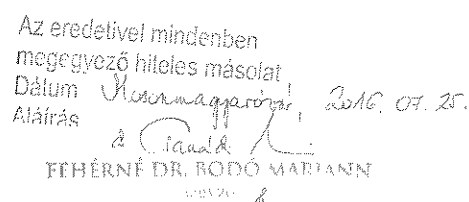 Az eredetivel mindenben
megegyező hiteles másolat
Dátum Mosonmagyaróvár, 2016. 07. 25.
Aláírás
FEHÉRNÉ DR. BODÓ MARIANN